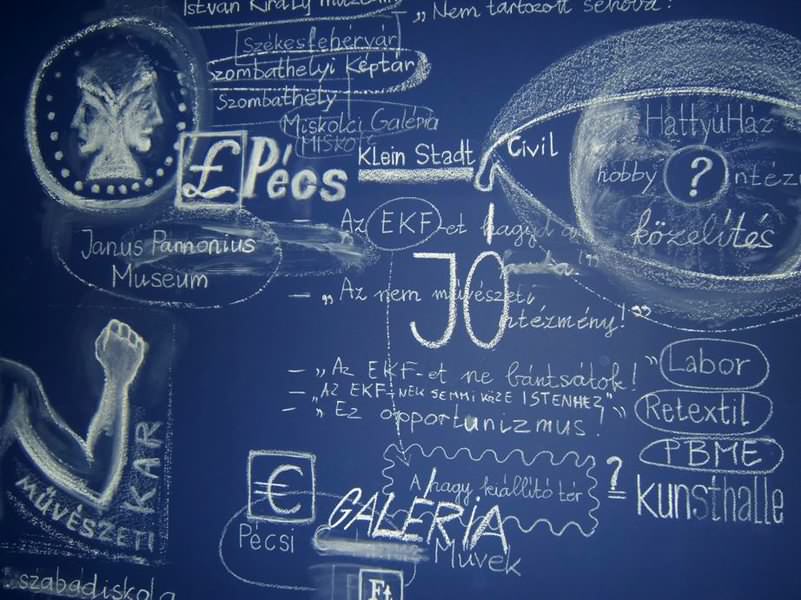 István Király múzeum
„Nem tartozott sehova!
Székesfehérvár
Szombathelyi Képtár
Szombathely
Miskolci Galéria
MISKOLC
£ Pécs
Klein Stadt
Civil
HattyúHáz
hobby ? intéz
közelítés
Janus Pannonius
Museum
– Az EKF-et hagyd
JÓ
– „Az nem művészeti
intézmény!”
– „Az EKF-et ne bántsátok!”
– „AZ EKF-NEK SEMMI KÖZE ISTENHEZ”
– „Ez opportunizmus!”
Labor
Retextil
PBME
MŰVÉSZETI
KAR
szabadiskola
€
Pécsi
GALÉRIA
Művek
Ft
A nagy kiállító tér
?
=
kunsthalle